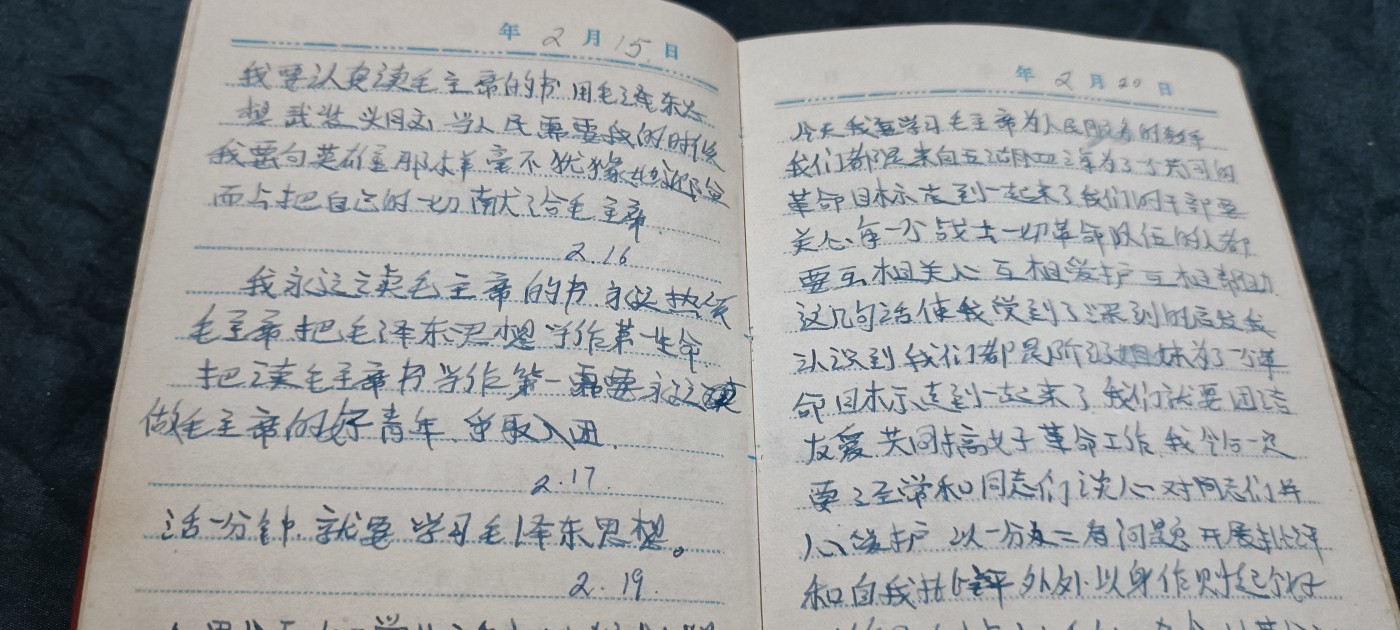 年 2 月 15 日
我要认真读毛主席的书 用毛泽东思
想武装头脑 当人民需要我的时候
我要向英雄那样毫不犹豫地
而占把自己的一切献给毛主席
2.16
我永远读毛主席的书 永远热爱
毛主席 把毛泽东思想当作第一生命
把读毛主席书当作第一需要 永远
做毛主席的好青年 争取入团.
2.17.
活一分钟.就要学习毛泽东思想。
2.19.
年 2 月 20 日
今天我学习毛主席为人民服务的
我们都是来自五湖四海为了一个共同的
革命目标走到一起来了我们的干部要
关心每一个战士一切革命队伍的人都
要互相关心 互相爱护 互相帮助
这几句话使我受到了深刻的启发我
认识到我们都是阶级姐妹为了一个革
命目标走到一起来了 我们就要团结
友爱 共同搞好革命工作 我今后一定
要经常和同志们谈心 对同志们
心爱护 以一分为二看问题 开展批评
和自我批评 处处以身作则起个好